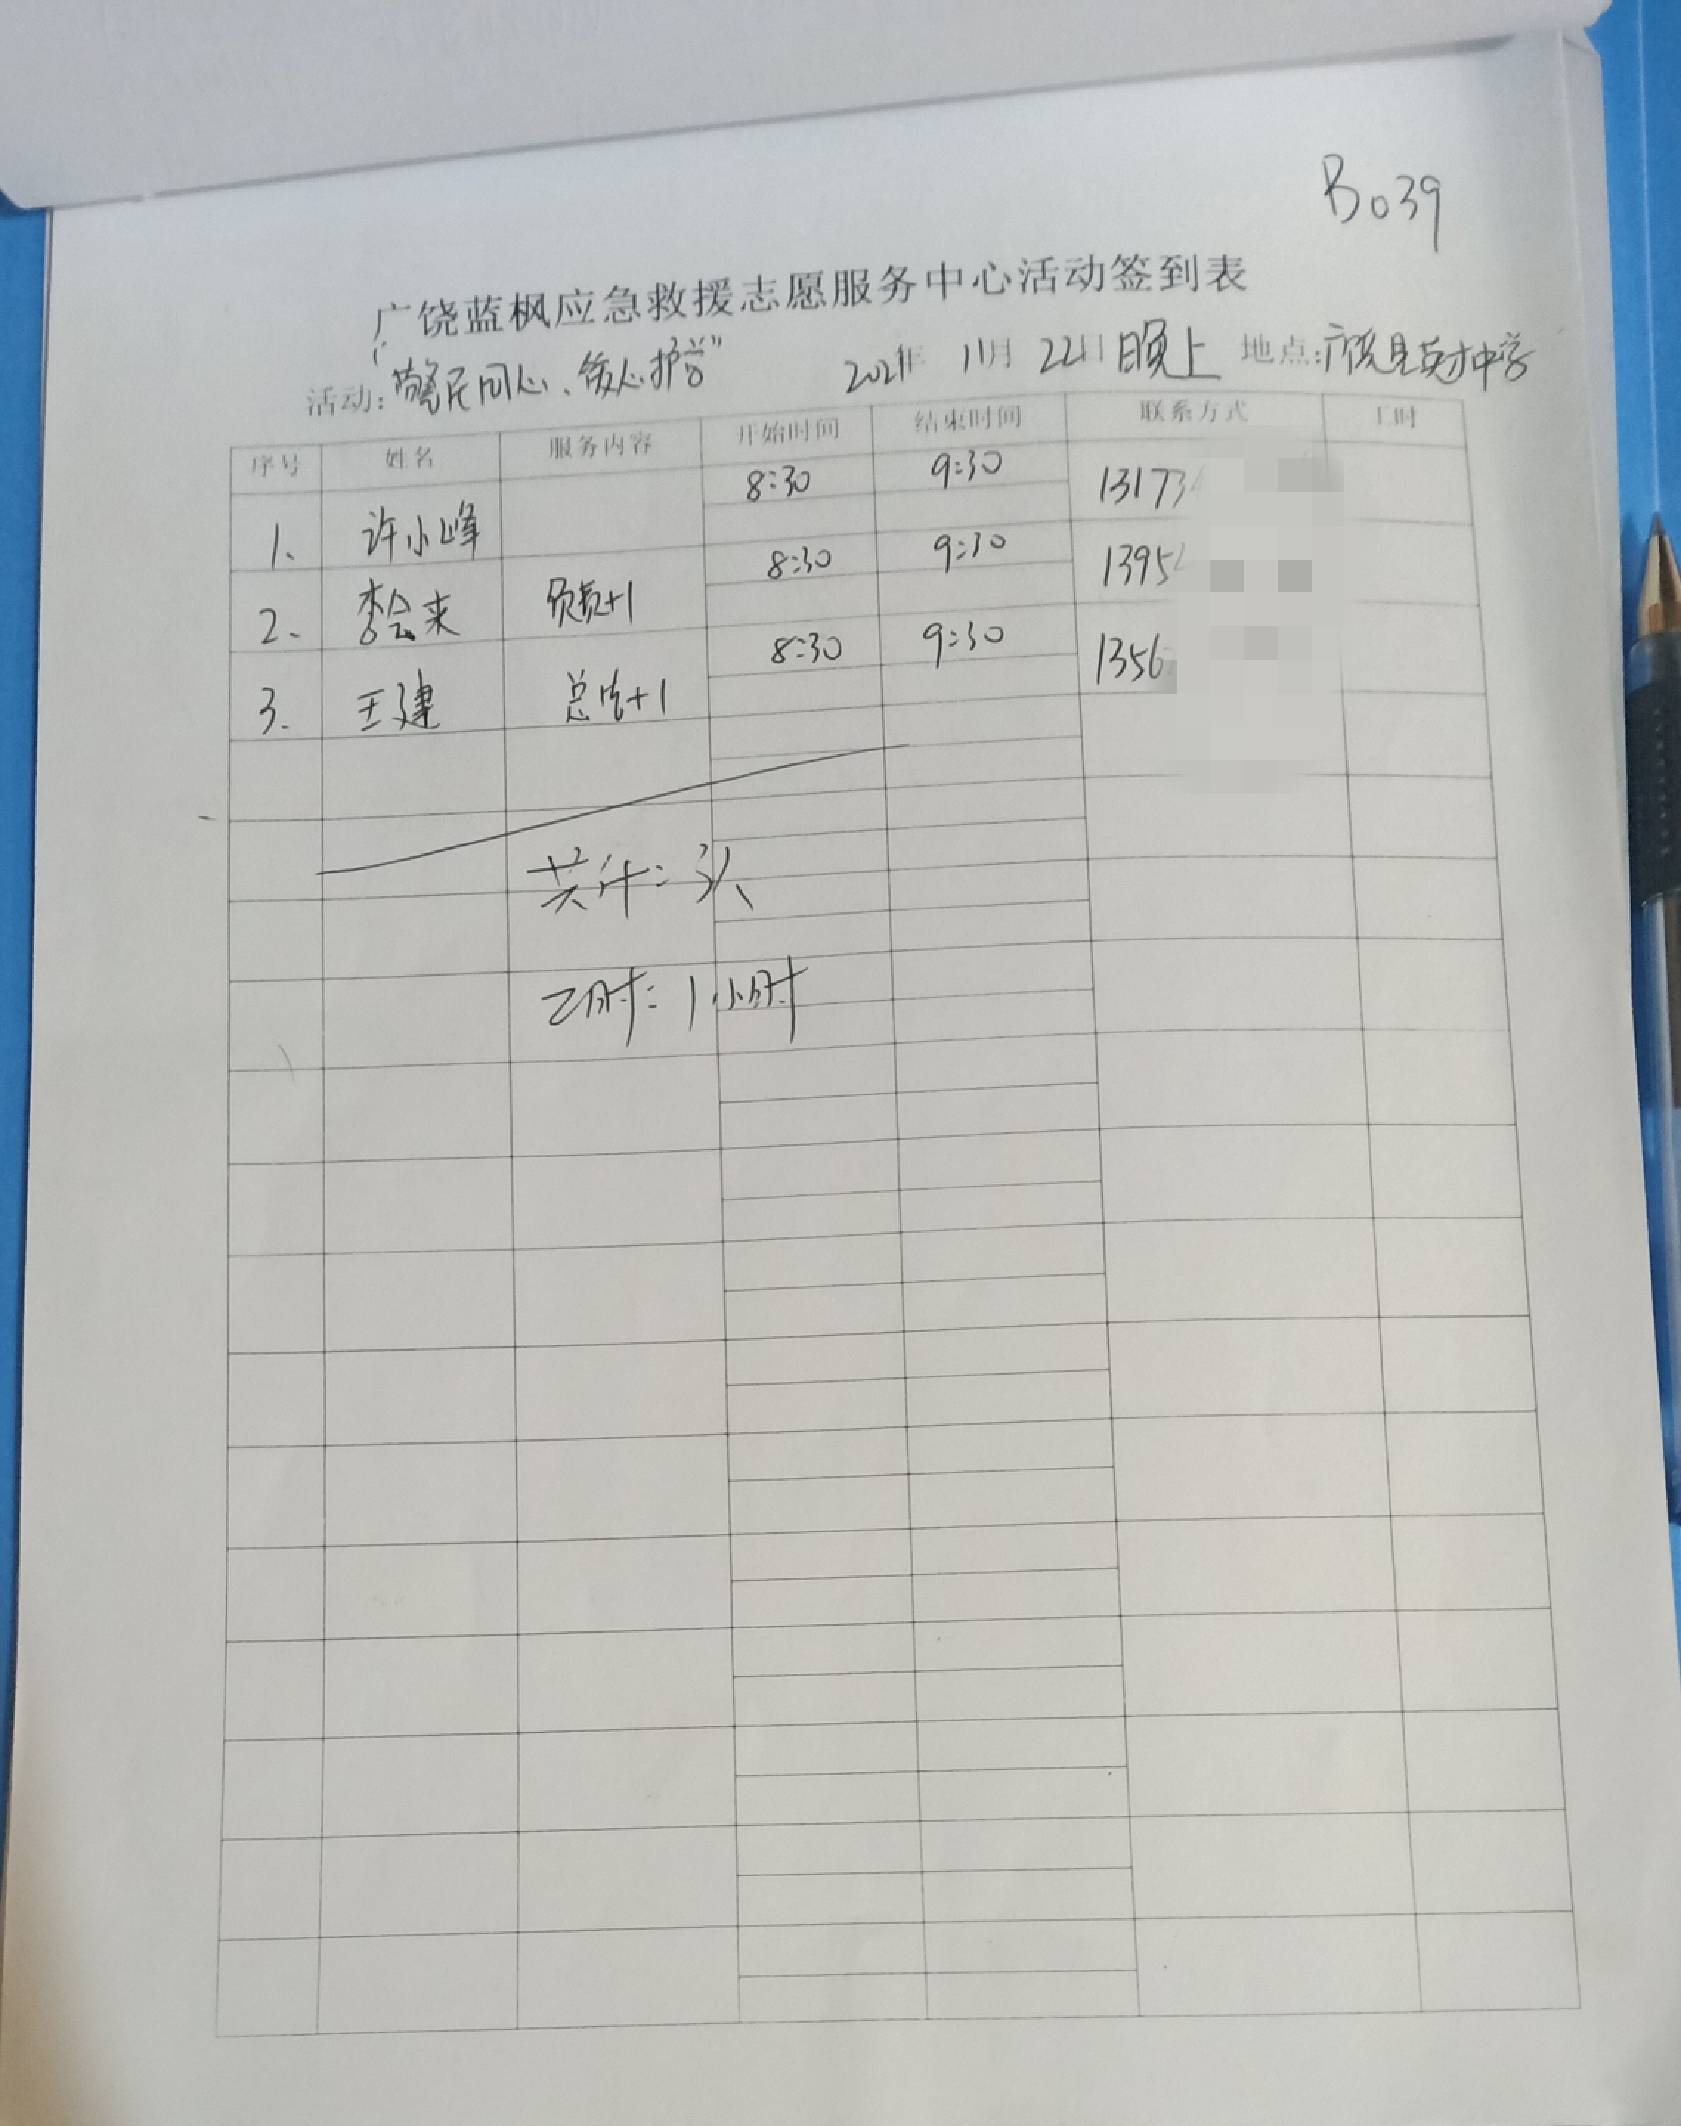 B039
广饶蓝枫应急救援志愿服务中心活动签到表
活动："警民同心、敛心护学" 2021年 11月 22日 晚上 地点：广饶县英才中学
序号 姓名 服务内容 开始时间 结束时间 联系方式 工时
1、 许小峰 8:30 9:30 13173
2、 李会来 负责+1 8:30 9:30 1395
3、 王建 总结+1 8:30 9:30 1356
共计：3人
工时：1小时